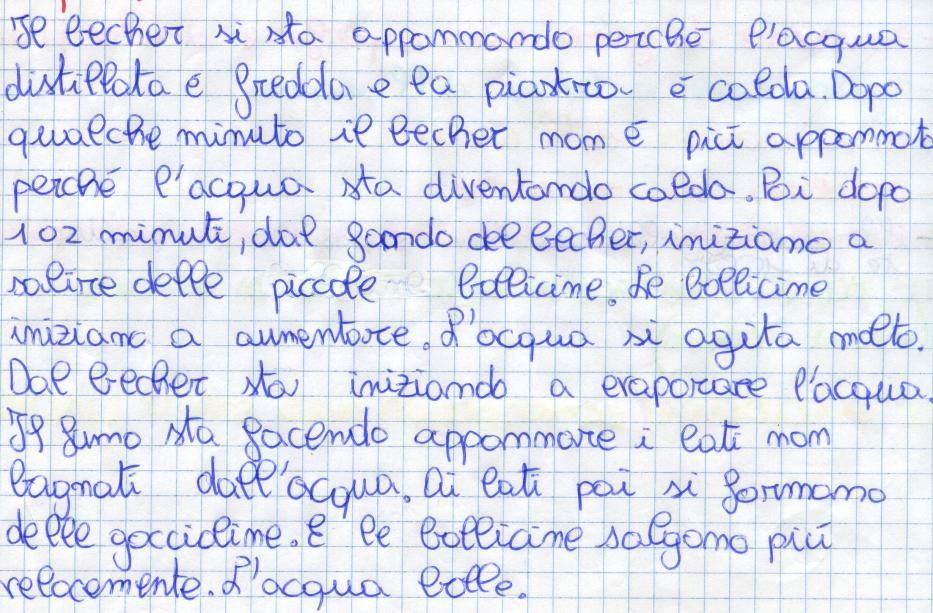 Il becher si sta appannando perché l'acqua
distillata é fredda e la piastra é calda. Dopo
qualche minuto il becher non é piú appannato
perché l'acqua sta diventando calda. Poi dopo
102 minuti, dal fondo del becher, iniziano a
salire delle piccole bollicine. Le bollicine
iniziano a aumentare. L'acqua si agita molto.
Dal becher sta iniziando a evaporare l'acqua.
Il fumo sta facendo appannare i lati non
bagnati dall'acqua. Ai lati poi si formano
delle goccioline. E le bollicine salgono piú
velocemente. L'acqua bolle.